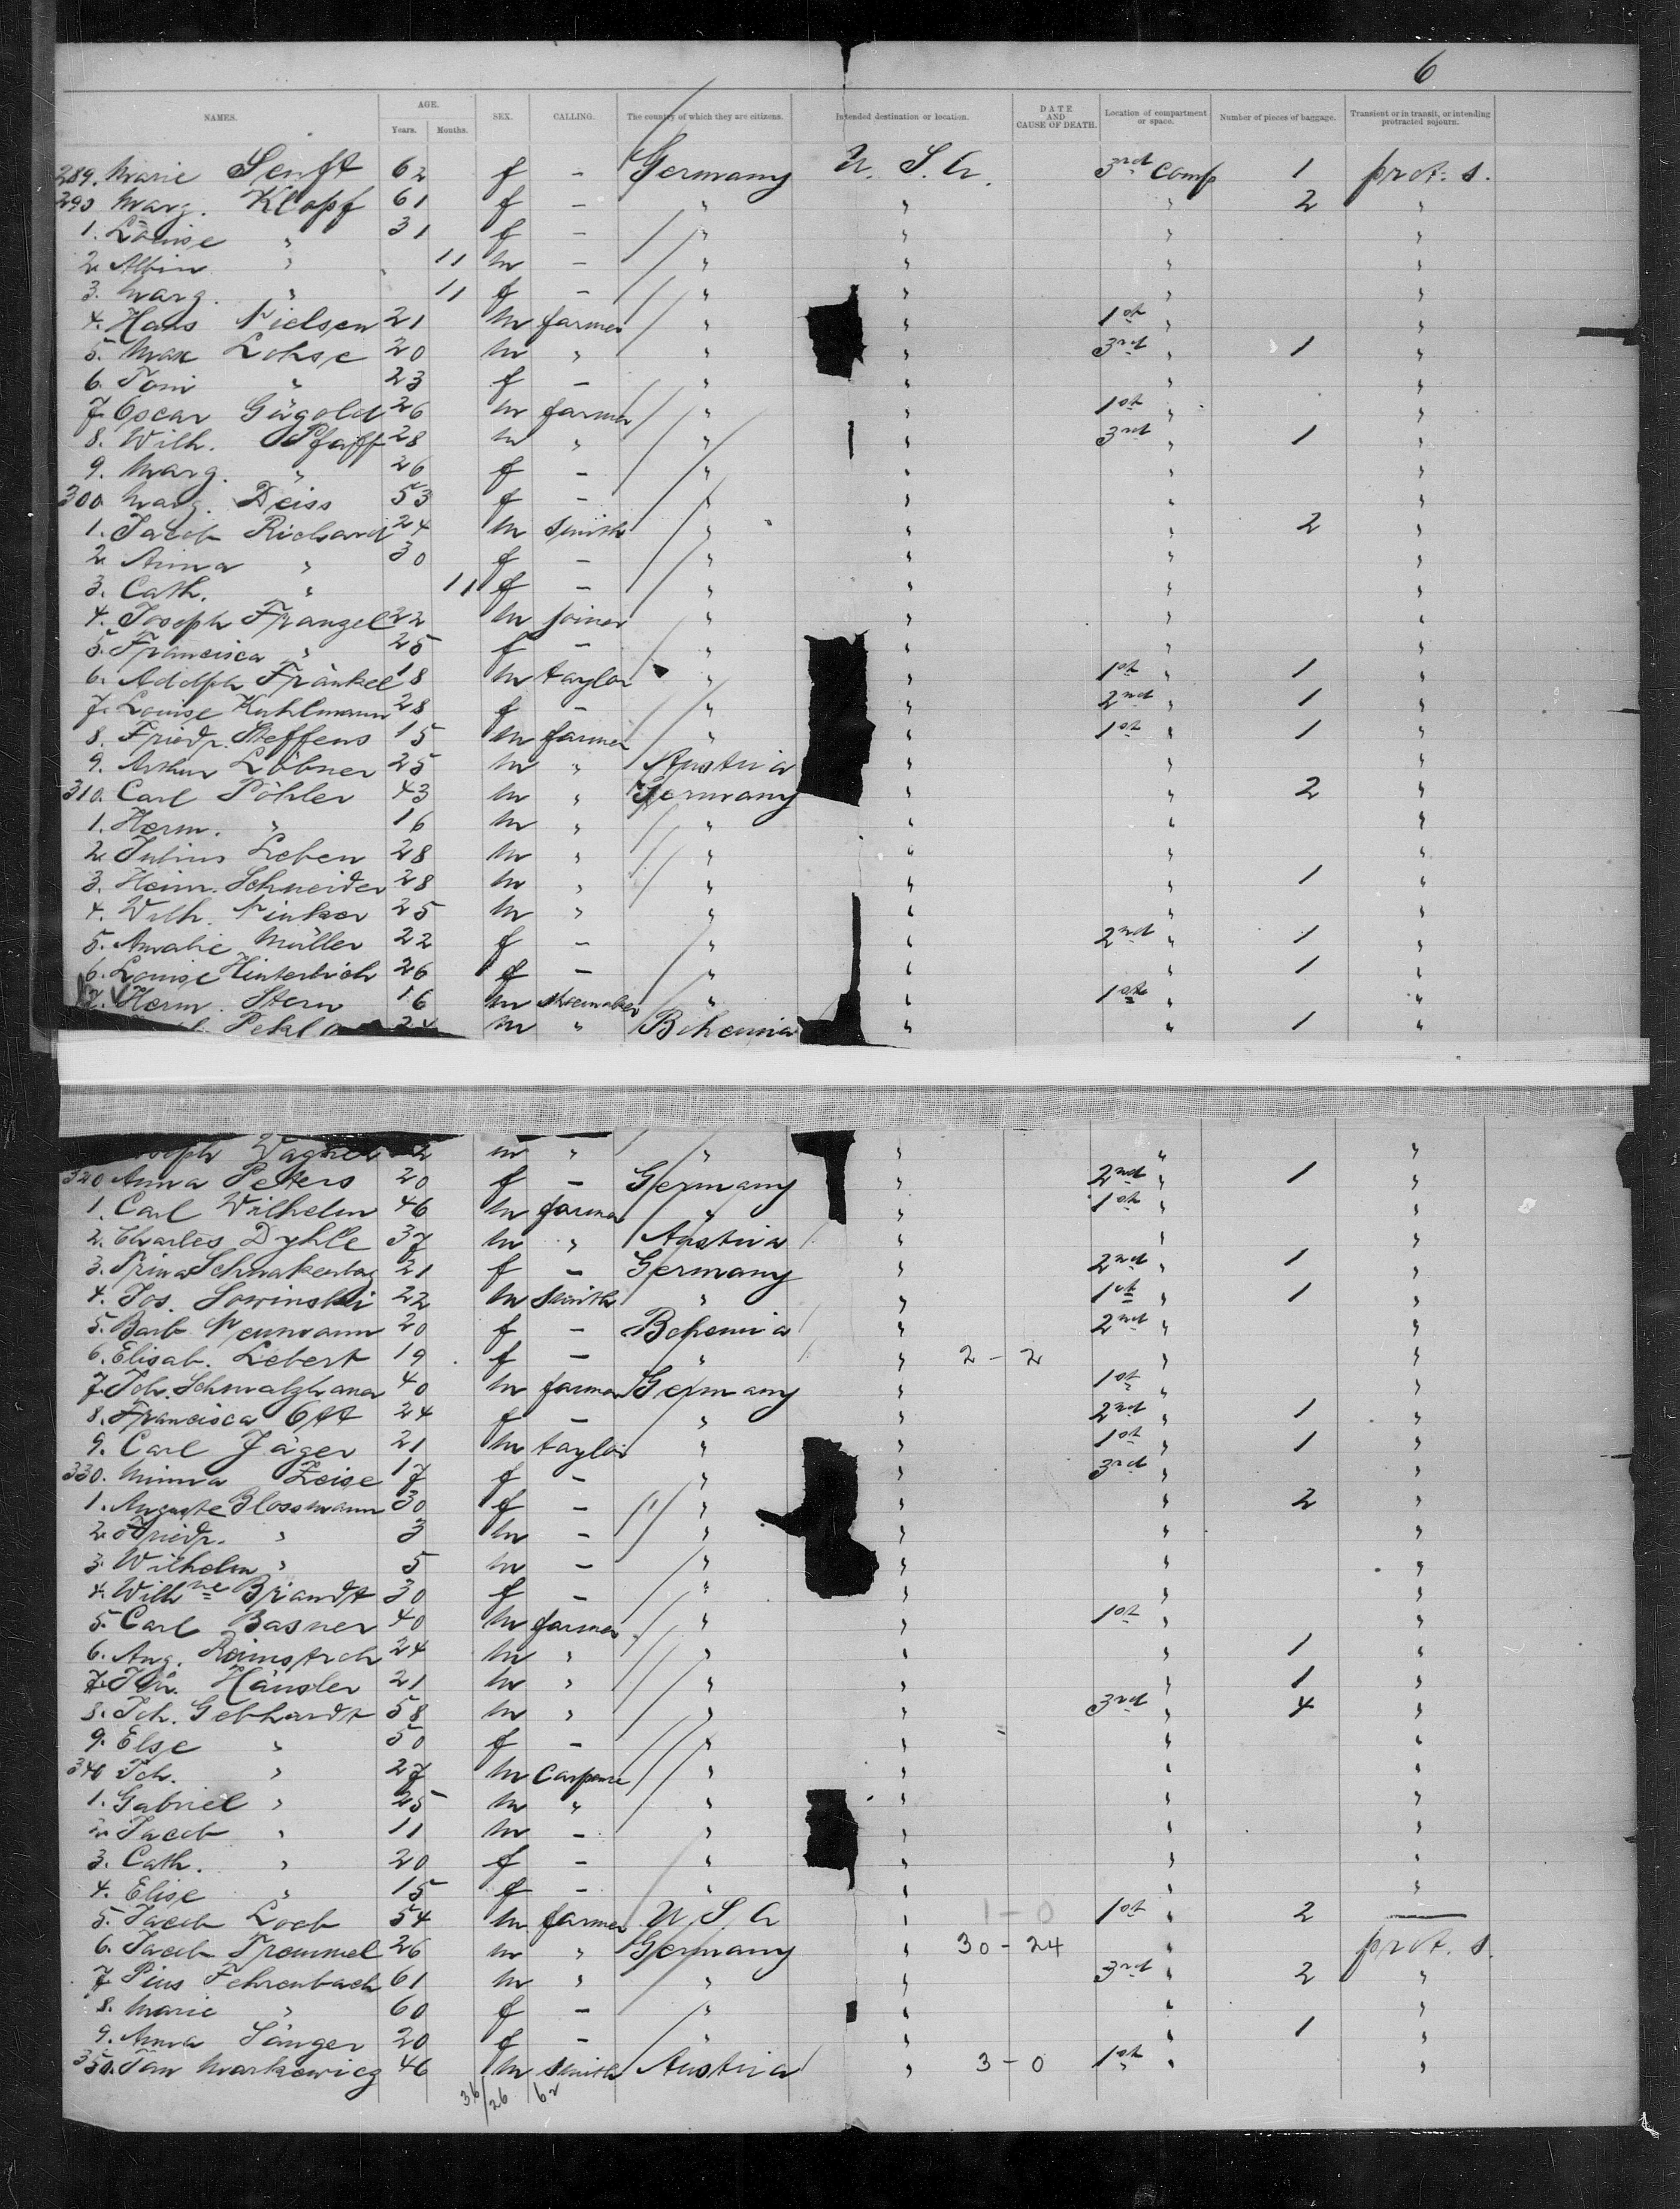 6
NAMES. AGE. Years. Months. SEX. CALLING. The country of which they are citizens. Intended destination or location. DATE AND CAUSE OF DEATH. Location of compartment or space. Number of pieces of baggage. Transient or in transit, or intending protracted sojourn.
289. Marie Senft 62 f - Germany U. S. A. 3rd Comp 1 prot. s.
290 Marg. Klopf 61 f - " " " 2 "
1. Louise " 31 f - " " " "
2. Albin " 11 m - " " " "
3. Marg. " 11 f - " " " "
4. Hans Nielsen 21 m farmer " " 1st " "
5. Max Lohse 20 m " " " 3rd " 1 "
6. Toni " 23 f - " " " "
7. Oscar Gägold 26 m farmer " " 1st " "
8. Wilh. Pfaff 28 m " " " 3rd " 1 "
9. Marg. " 26 f - " " " "
300 Marg. Deiss 53 f - " " " "
1. Jacob Richard 24 m smith " " " 2 "
2. Anna " 30 f - " " " "
3. Cath. " 11 f - " " " "
4. Joseph Franzel 22 m joiner " " " "
5. Francisca " 25 f - " " " "
6. Adolph Fränkel 18 m taylor " " 1st " 1 "
7. Louise Kuhlmann 28 f - " " 2nd " 1 "
8. Friedr. Steffens 15 m farmer " " 1st " 1 "
9. Arthur Löbner 25 m " Austria " " "
310. Carl Pöhler 43 m " Germany " " 2 "
1. Herm. " 16 m " " " " "
2. Julius Leben 28 m " " " " "
3. Heinr. Schneider 28 m " " " " 1 "
4. Wilh. Ninker 25 m " " " " "
5. Amalie Müller 22 f - " " 2nd " 1 "
6. Louise 26 f - " " " 1 "
7. Herm. Stern 16 m shoemaker " " 1st " "
24 m " Bohemia " " 1 "
Wagner 2 m " " " " "
320 Anna Peters 20 f - Germany " 2nd " 1 "
1. Carl Wilhelm 46 m farmer " " 1st " "
2. Charles Dyhle 37 m " Austria " " "
3. 21 f - Germany " 2nd " 1 "
4. Jos. Sowinski 22 m smith " " 1st " 1 "
5. Barb. Neumann 20 f - Bohemia " 2nd " "
6. Elisab. Lebert 19 f - " " 2 - 2 " "
7. Joh. 40 m farmer Germany " 1st " "
8. Francisca Ott 24 f - " " 2nd " 1 "
9. Carl Jäger 21 m taylor " " 1st " 1 "
330. Minna Zeise 17 f - " " 3rd " "
1. Auguste Blossmann 30 f - " " " 2 "
2. Friedr. " 3 m - " " " "
3. Wilhelm " 5 m - " " " "
4. Willhne Briandt 30 f - " " " "
5. Carl Basner 40 m farmer " " 1st " "
6. Aug. 24 m " " " " 1 "
7. Hänsler 21 m " " " " 1 "
8. Joh. Gebhardt 58 m " " " 3rd " 4 "
9. Else " 50 f - " " " "
340 Joh. " 27 m " " " "
1. Gabriel " 25 m " " " " "
2. Jacob " 11 m - " " " "
3. Cath. " 20 f - " " " "
4. Elise " 15 f - " " " "
5. Jacob Loeb 54 m farmer U. S. A " 1 - 0 1st " 2 —
6. Jacob Trommel 26 m " Germany " 30 - 24 " prot. s.
7. Pius Fehrenbach 61 m " " " 3rd " 2 "
8. Marie " 60 f - " " " "
9. Anna Sänger 20 f - " " " 1 "
350. Jan Markowicz 46 m smith Austria " 3 - 0 1st " "
36/26 62